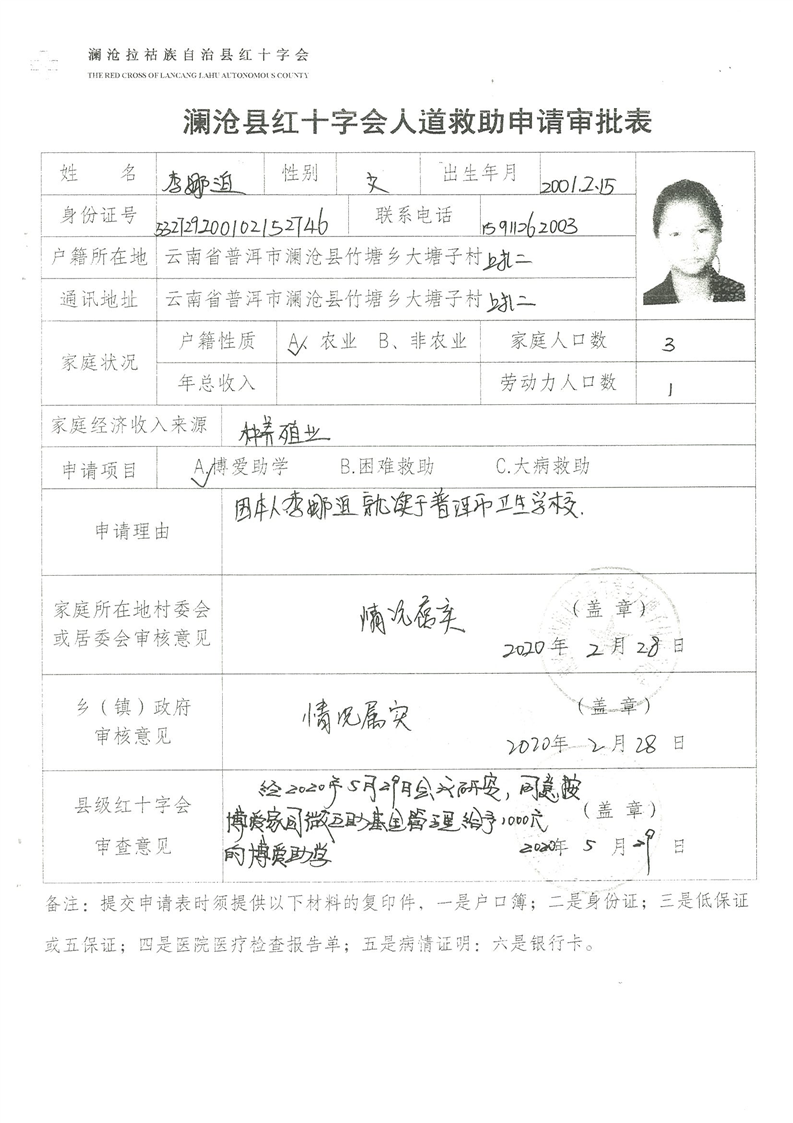 澜沧拉祜族自治县红十字会
THE RED CROSS OF LANCANG LAHU AUTONOMOUS COUNTY
澜沧县红十字会人道救助申请审批表
姓 名 李娜迫 性别 女 出生年月 2001.2.15
身份证号 532729200102152746 联系电话 15911262003
户籍所在地 云南省普洱市澜沧县竹塘乡大塘子村上扎二
通讯地址 云南省普洱市澜沧县竹塘乡大塘子村上扎二
家庭状况 户籍性质 A、农业 B、非农业 家庭人口数 3
年总收入 劳动力人口数 1
家庭经济收入来源 种养殖业
申请项目 A.博爱助学 B.困难救助 C.大病救助
申请理由 因本人李娜迫就读于普洱市卫生学校.
家庭所在地村委会
或居委会审核意见 情况属实 （盖 章）
2020年 2月 28日
乡（镇）政府
审核意见 情况属实 （盖 章）
2020年 2月 28日
县级红十字会
审查意见 经2020年5月29日会议研究，同意按
博爱家园 互助基国管理给予1000元
的博爱助学
（盖 章）
2020年 5月 29日
备注：提交申请表时须提供以下材料的复印件，一是户口簿；二是身份证；三是低保证
或五保证；四是医院医疗检查报告单；五是病情证明：六是银行卡。